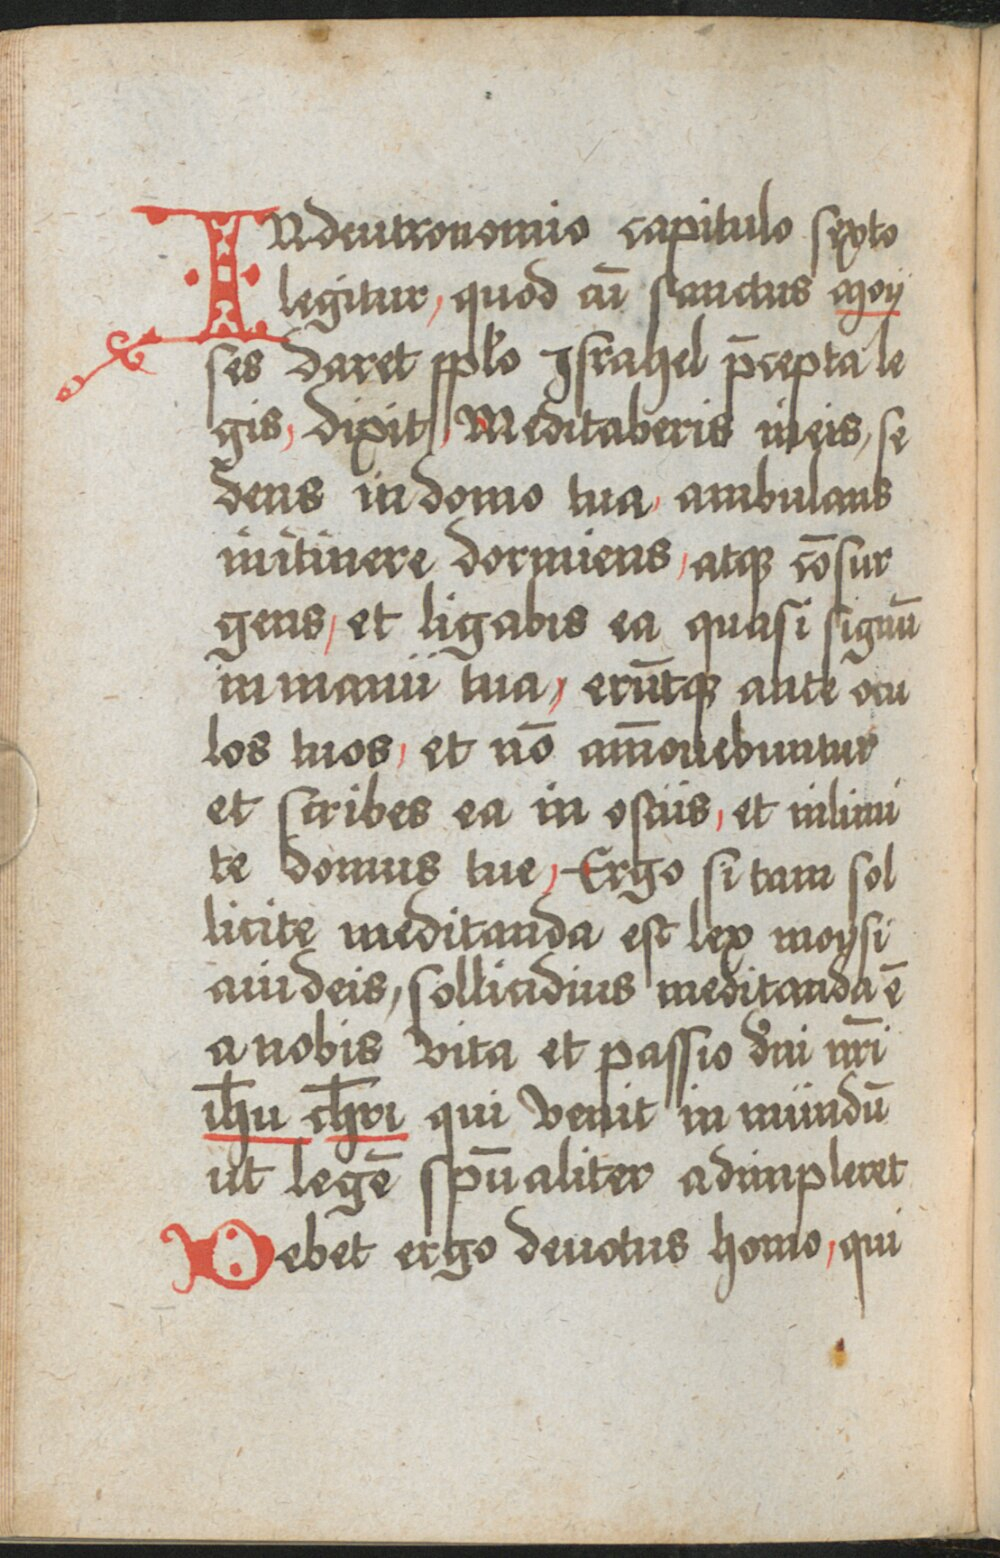 INdeutronomio capitulo sexto
legitur, quod cū sanctus Moÿ
ses daret pplo Israhel p̄cepta le
gis, dixit, Meditaberis in eis, se
dens in domo tua, ambulans
in itinere dormiens, atqꝫ cōsur
gens, et ligabis ea quasi signū
in manu tua, erūtqꝫ ante ocu
los tuos, et nō am̄ouebuntur
et scribes ea in ostiis, et in limi
te domus tue, Ergo si tam sol
licite meditanda est lex moysi
a iudeis, sollicidius meditanda ē
a nobis vita et passio dn̄i nr̄i
ih̄u ch̄ri qui venit in mundū
ut legē sp̄ualiter adimpleret
Debet ergo deuotus homo, qui